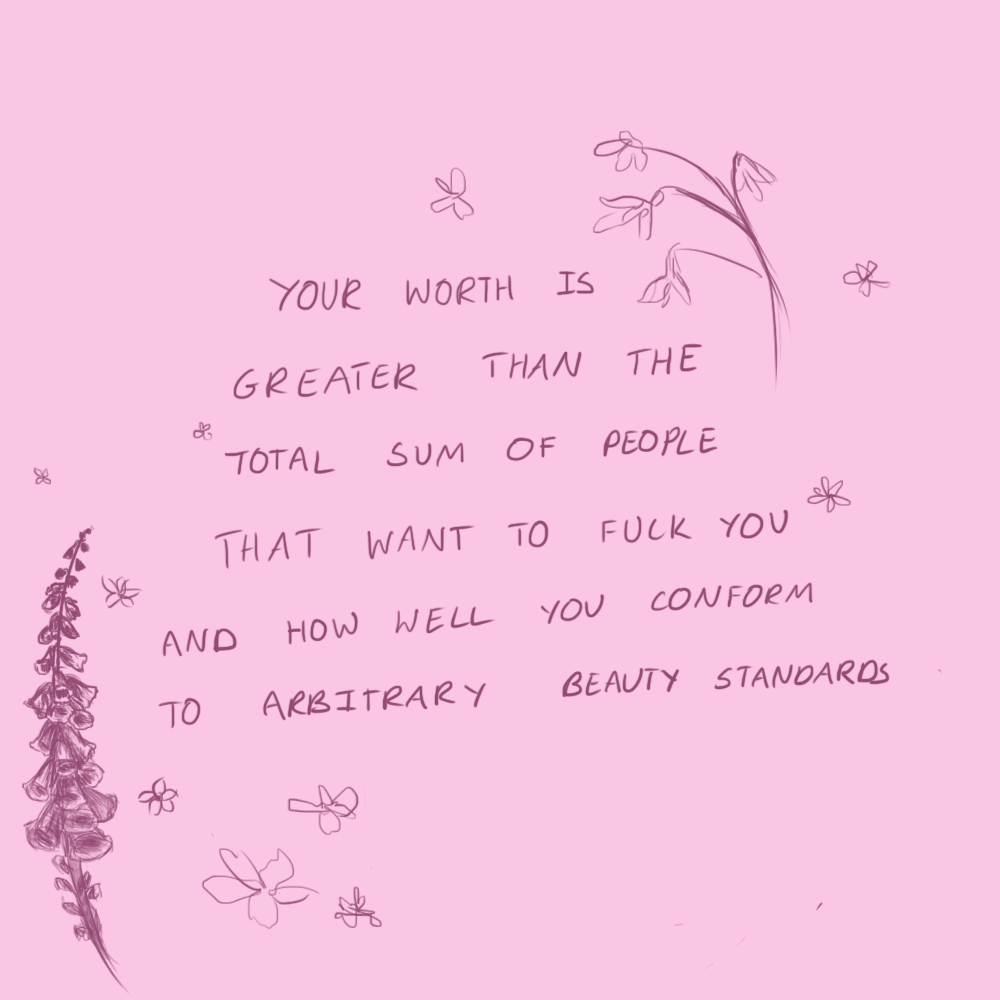 YOUR WORTH IS
GREATER THAN THE
TOTAL SUM OF PEOPLE
THAT WANT TO FUCK YOU
AND HOW WELL YOU CONFORM
TO ARBITRARY BEAUTY STANDARDS